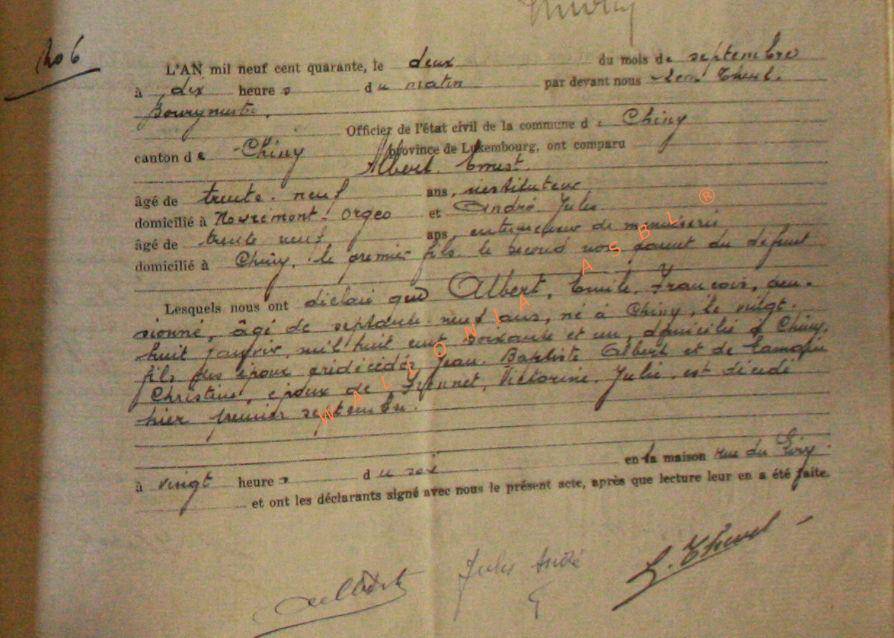 No 6
L'AN mil neuf cent quarante, le deux du mois de septembre
à dix heures du matin par devant nous Léon
Bourgmestre,
Officier de l'état civil de la commune de Chiny
canton de Chiny province de Luxembourg, ont comparu
Albert, Ernest.
âgé de trente-neuf ans, instituteur
domicilié à Novremont-Orgeo et André Jules
âgé de trente neuf ans, entrepreneur de menuiserie
domicilié à Chiny, le premier fils le second non parent du défunt
Lesquels nous ont déclaré que Albert, Emile, François, pen-
sionné, âgé de septante neuf ans, né à Chiny, le vingt-
huit janvier, mil huit cent soixante et un, domicilié à Chiny,
fils des époux prédécédés Jean-Baptiste Albert et de
Christine, époux de Victorine, Julie, est décédé
hier premier septembre.
à vingt heures du soir en la maison rue du
et ont les déclarants signé avec nous le présent acte, après que lecture leur en a été faite.
Albert Jules André
WALLONIA ASBL ®